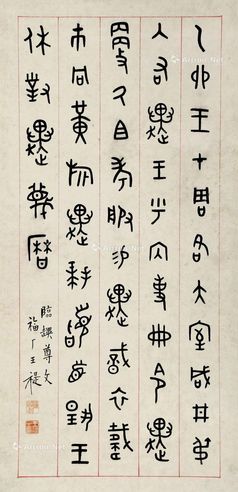 乙卯王才周各大室咸井叔
入右趩王乎內史冊令趩
更氒且考服易趩戠衣載
巿冋黃旂趩拜稽首揚王
休對趩蔑曆
臨趩尊文
福厂王禔